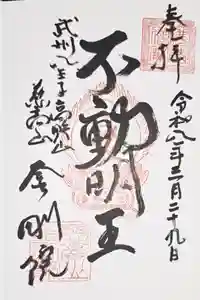 奉拝
令和八年三月二十九日
不動明王
武州八王子
慈高山
金剛院